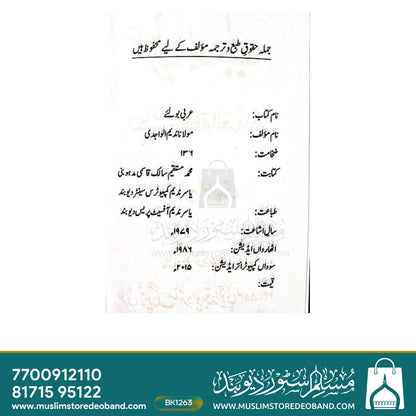 جملہ حقوق طبع و ترجمہ مؤلف کے لیے محفوظ ہیں
نام کتاب: عربی بولئے
نام مؤلف: مولانا ندیم الواجدی
ضخامت: ۱۳۶
کتابت: محمد مستقیم سالک قاسمی مدہوبنی
یاسر ندیم کمپیوٹرس سینٹر دیوبند
طباعت: یاسر ندیم آفسیٹ پریس دیوبند
سال اشاعت: ۱۹۷۹ء
اٹھارواں ایڈیشن: ۱۹۸۶ء
سوواں کمپیوٹرائز ایڈیشن: ۲۰۱۵ء
قیمت:
7700912110
81715 95122
www.muslimstoredeoband.com
BK1263
مسلم سٹور دیوبند
www.muslimstoredeoband.com